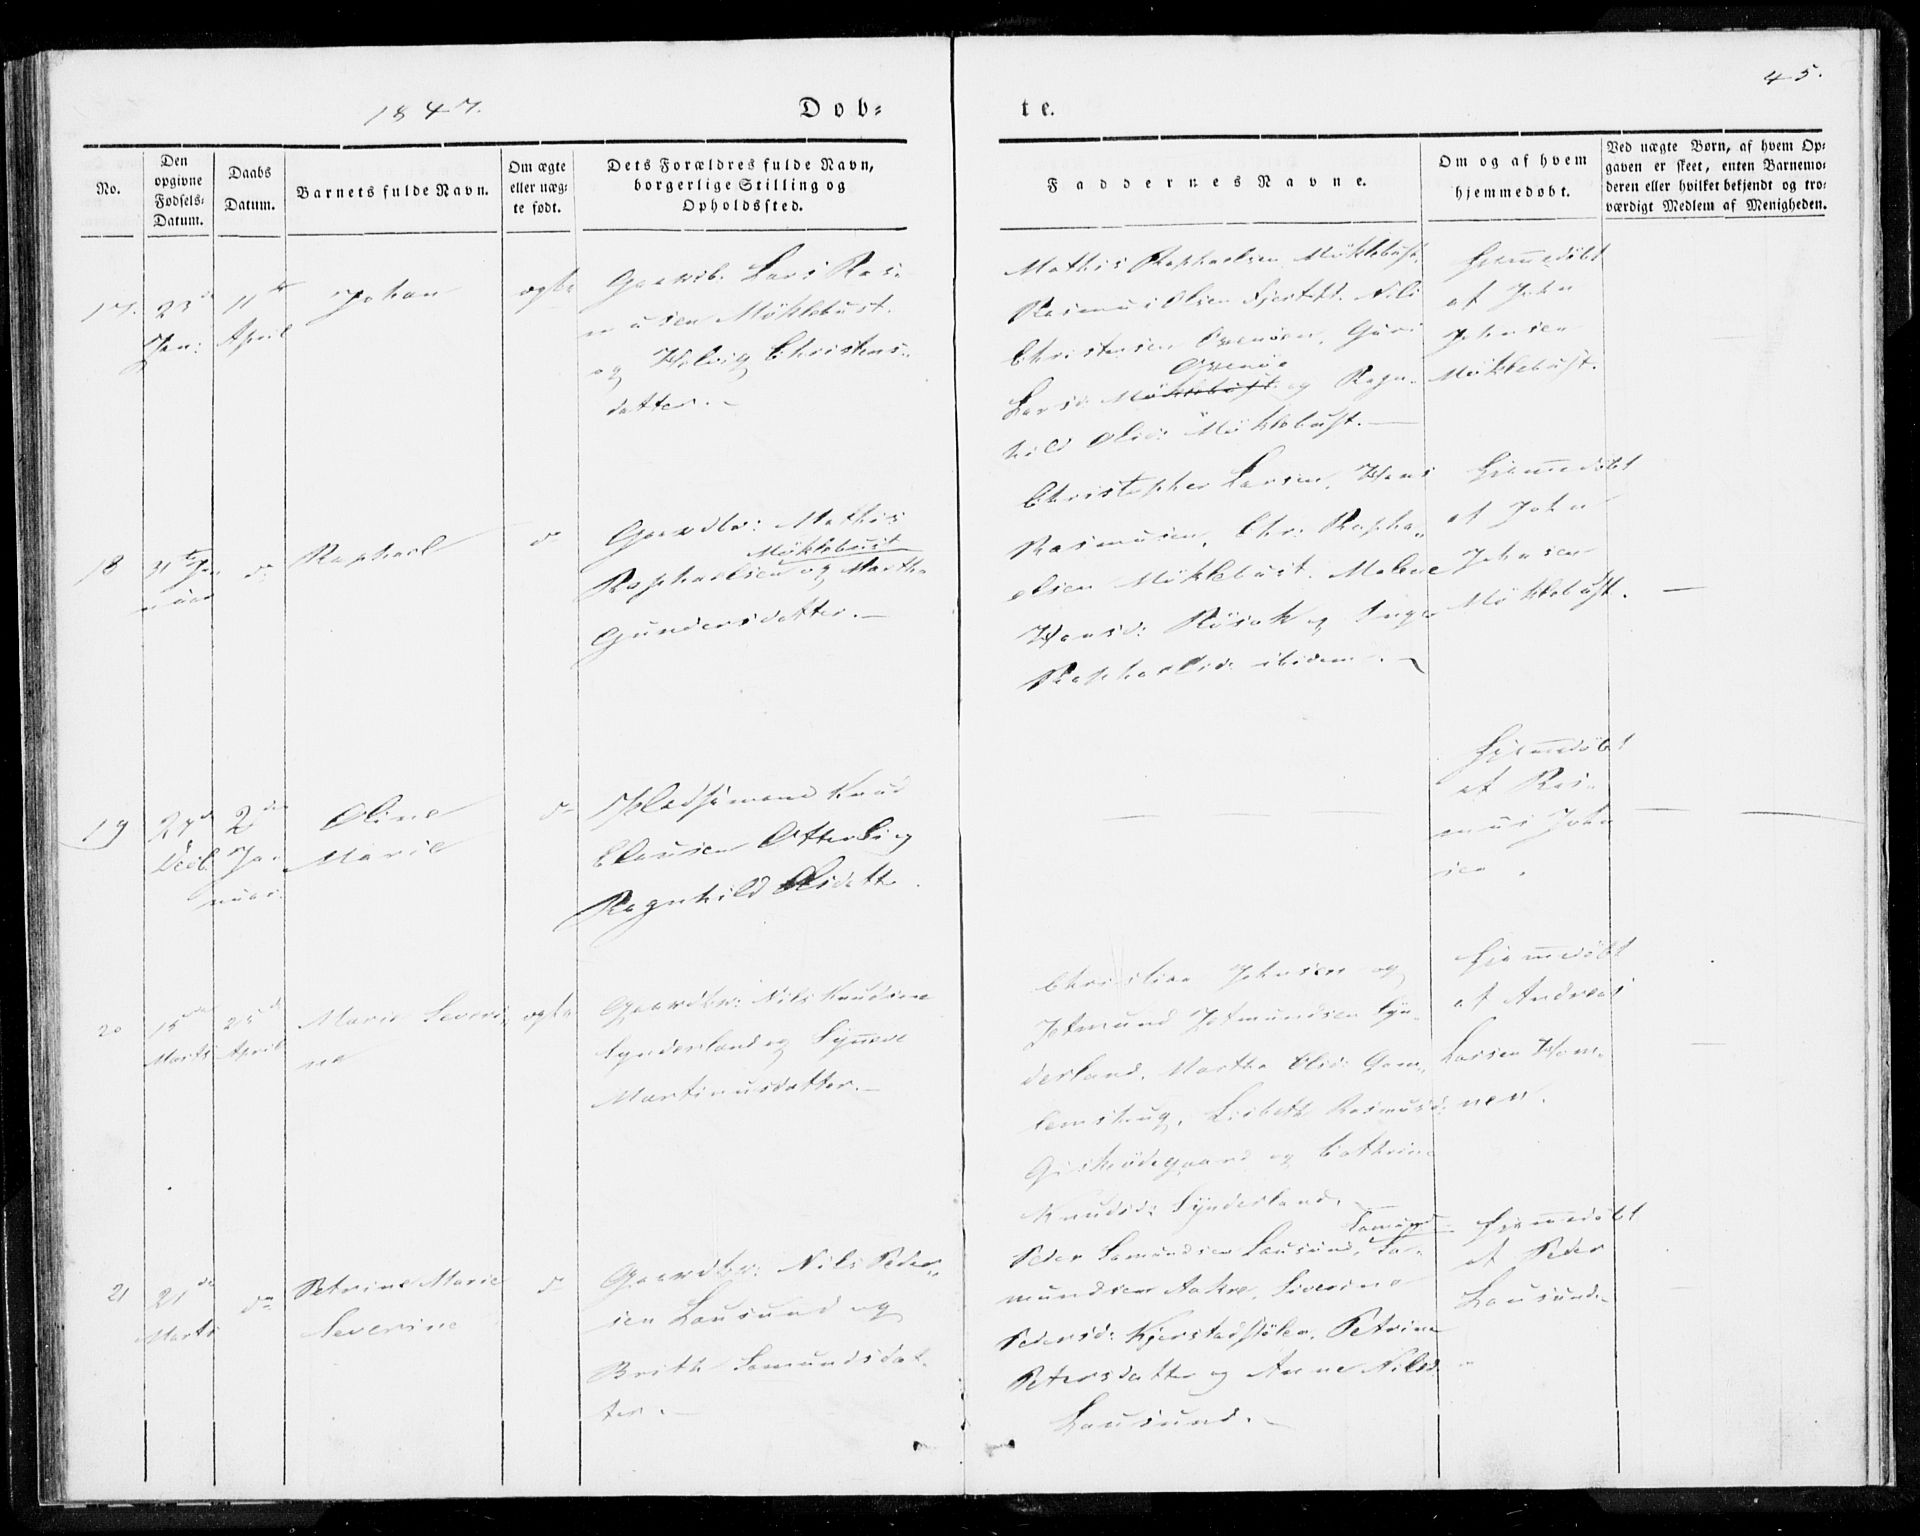 45.
1847.
Dob-
te.
No.
Den opgivne Fødsels-Datum.
Daabs Datum.
Barnets fulde Navn.
Om ægte eller nægte født.
Dets Forældres fulde Navn, borgerlige Stilling og Opholdssted.
Faddernes Navne.
Om og af hvem hjemmedøbt.
Ved nægte Børn, af hvem Op-
gaven er skeet, enten Barnemo-
deren eller hvilket bekjendt og tro-
værdigt Medlem af Menigheden.
17.
23d
Jan:
11te
April
Johan
ægte
Gaardb. Lars Ras-
musen Möklebust.
og Christens-
datter.
Mathis Raphaelsen Möklebust,
Rasmus Olsen Nils
Christensen Guri
Larsd: Möklebust og Ragn-
hild Olsd: Möklebust.
Hjemmedöbt
af John
Johnsen
Möklebust.
18
31te Jan
nuar
do
Raphael
do
Gaardbr: Mathis
Möklebust
Raphaelsen og Marthe
Gundersdatter.
Christopher Larsen, Hans
Rasmusen, Chr: Rapha-
elsen Möklebust. Malene
Hansd: Rösok og Inger
Raphaelsd: ibidem.
Hjemmedöbt
af John
Johnsen
Möklebust.
19
27d
Decb.
2den
Ja-
nuar.
Oline
Marie
do
Pladsemand Knud
Clausen Otterlei og
Ragnhild Olsdatter.
Hjemmedöbt
af Ras-
mus John
sen.
20
15de
Marts
25d
April
Marie Severi-
ne
ægte
Gaardbr: Nils Knudsen
Synderland og Synneve
Martinusdatter.
Christian Johnsen og
Jetmund Jetmundsen Syn-
derland, Marthe Olsd: Gam-
lemshug, Lisbeth Rasmusd:
Giskeödegaard og Cathrine
Knudsd: Synderland.
Hjemmedöbt
af Andreas
Larsen Ham-
nen.
21
21de
Marts
do
Petrine Marie
Severine
do
Gaardbr: Nils Peder-
sen Lausund og
Brith Samundsdat-
ter.
Peder Samundsen Lausund, Sa-
mundsen Aakre, Siverine
Pedersd: Kjerstadstölen, Petrine
Petersdatter og Anne Nilsd
Lausund.
Hjemmedöbt
af Peder
Lausund.